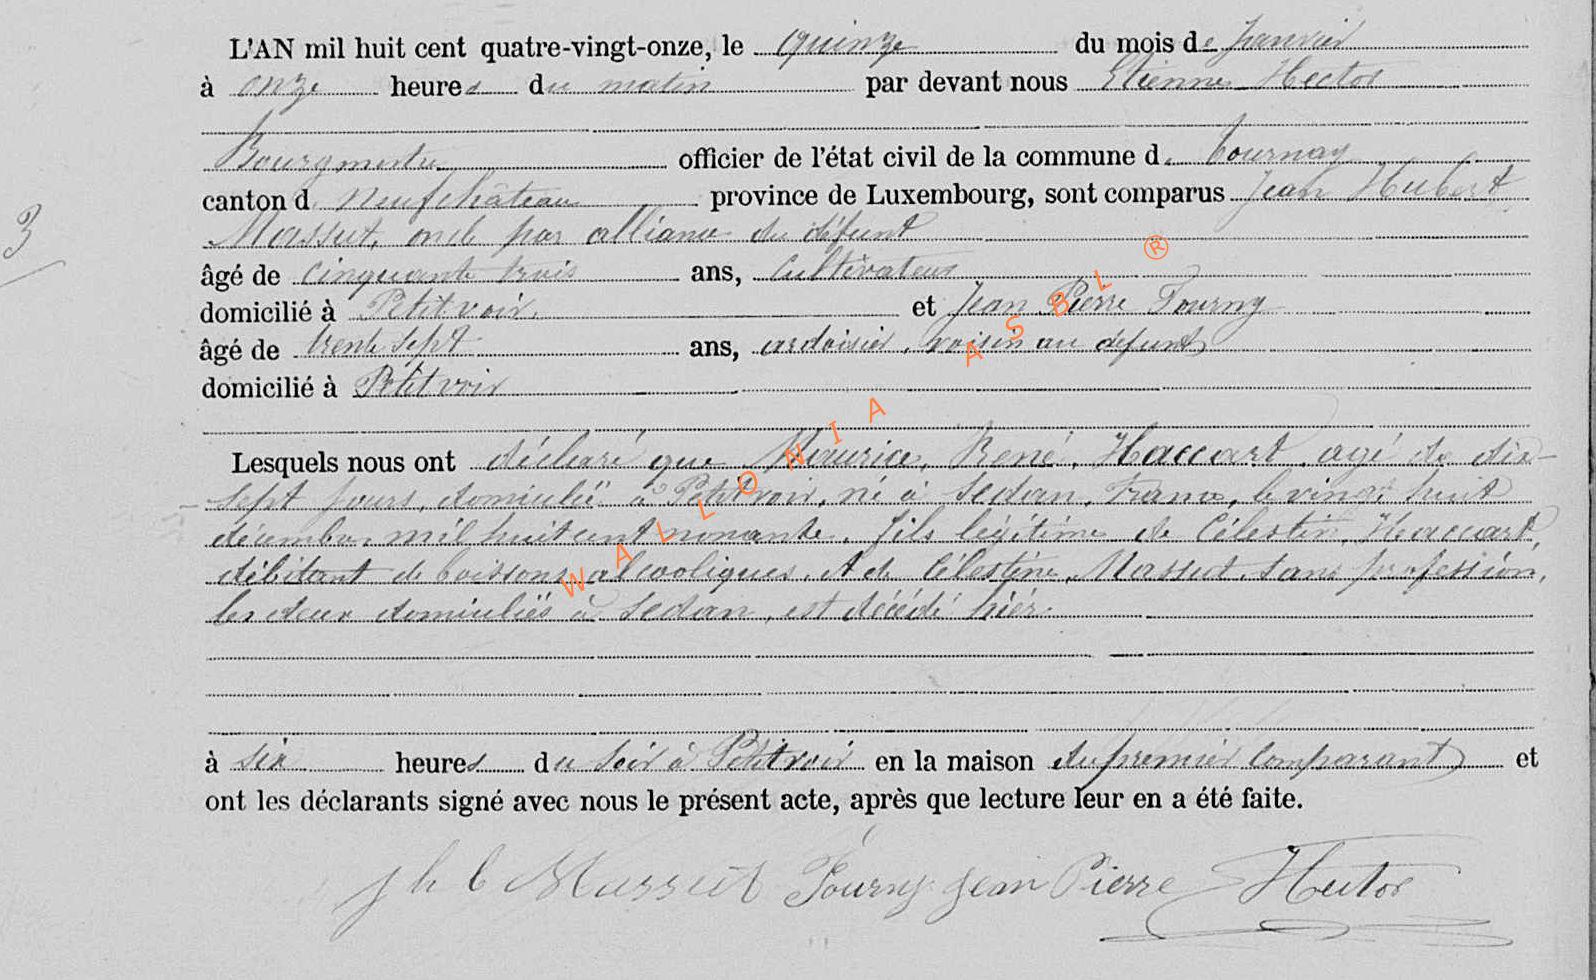 L'AN mil huit cent quatre-vingt-onze, le quinze du mois de Janvier
à onze heures du matin par devant nous Etienne Hector
Bourgmestre officier de l'état civil de la commune de Tournay
canton de Neufchâteau province de Luxembourg, sont comparus Jean Hubert
3
Massut, oncle par alliance du défunt
âgé de cinquante trois ans, cultivateur
domicilié à Petitvoir et Jean Pierre Fourny
âgé de trente sept ans, ardoisier, voisin au défunt
domicilié à Petitvoir
Lesquels nous ont déclaré que Maurice, René, Haccart, agé de dix-
sept jours, domicilié à Petitvoir, né à Sedan, France, le vingt huit
décembre mil huit cent nonante, fils légitime de Célestin Haccart,
débitant de boissons alcooliques, et de Célestine Massut, sans profession,
les deux domiciliés à Sedan, est décédé hier
à six heures du soir à Petitvoir en la maison du premier comparant et
ont les déclarants signé avec nous le présent acte, après que lecture leur en a été faite.
J h b Massut Fourny Jean Pierre Hector
WALLONIA ASBL ®